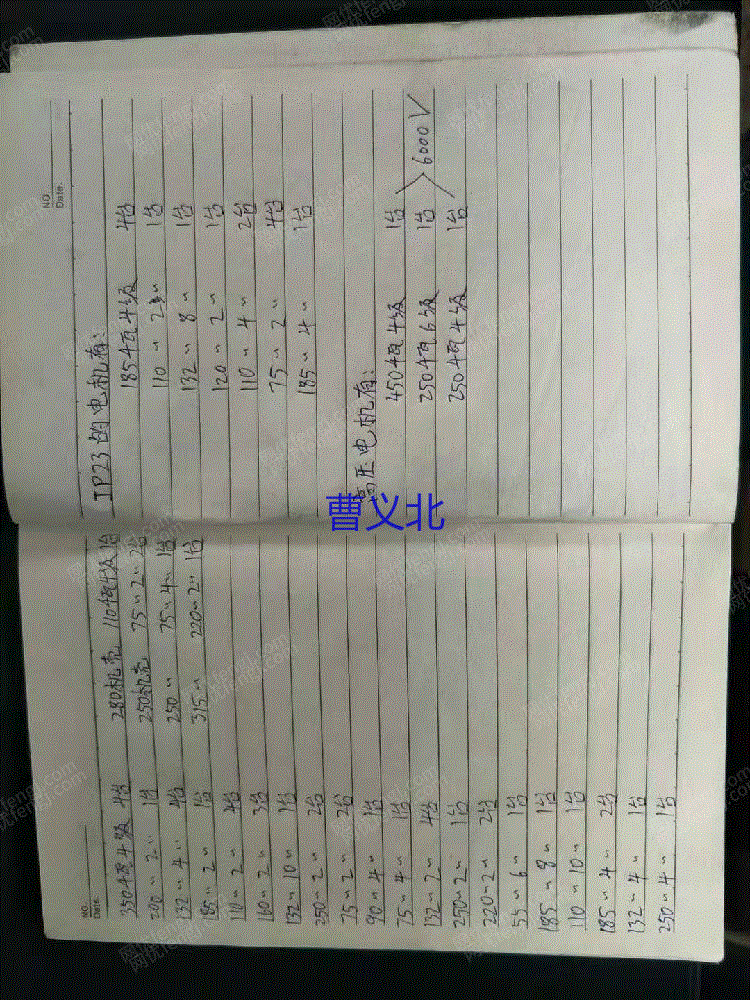 NO.
Date.
350千瓦4级 4台
200〃2〃 1台
132〃4〃 4台
185〃2〃 1台
110〃2〃 4台
160〃2〃 3台
132〃10〃 1台
250〃2〃 2台
75〃2〃 2台
90〃4〃 1台
75〃4〃 1台
132〃2〃 4台
250〃2〃 1台
220〃2〃 2台
55〃6〃 1台
185〃8〃 1台
110〃10〃 1台
185〃4〃 2台
132〃4〃 1台
250〃4〃 1台
280机壳 110千瓦4级 1台
250机壳 75〃2〃2台
250〃 75〃4〃1台
315〃 220〃2〃1台
NO
Date:
IP23的电机有:
185千瓦4级 4台
110〃2〃 1台
132〃8〃 1台
120〃2〃 1台
110〃4〃 2台
75〃2〃 4台
185〃4〃 1台
高压电机有:
450千瓦4级 1台
250千瓦6级 1台
250千瓦4级 1台
6000V
曹义北